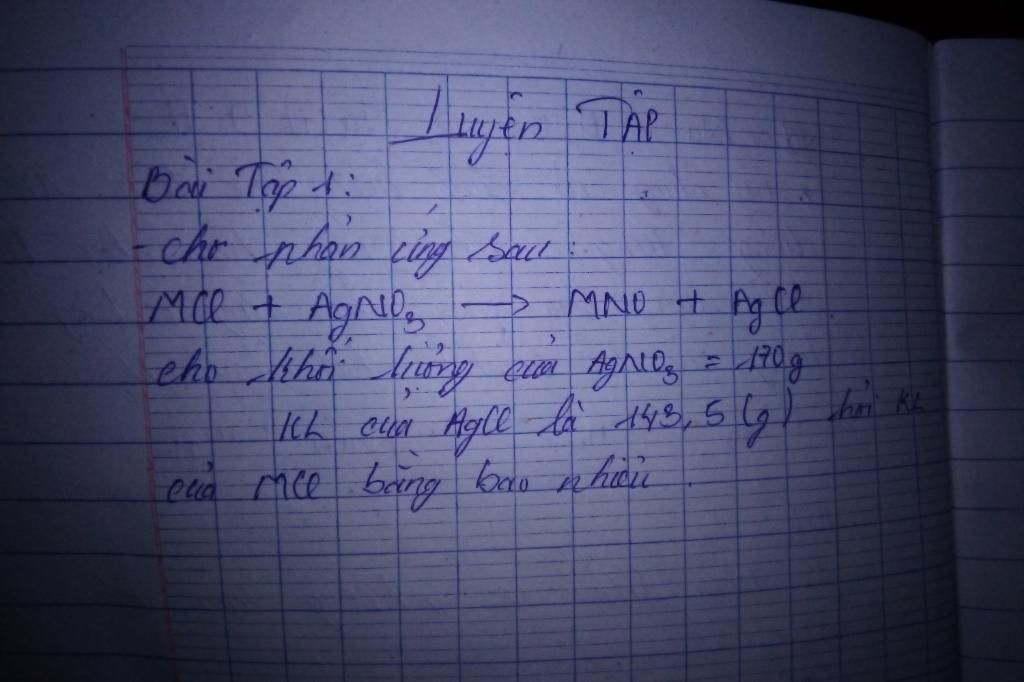 Luyện TẬP
Bài Tập 1:
- cho phản ứng sau:
MCl + AgNO3 → MNO + AgCl
cho khối lượng của AgNO3 = 170g
KL của AgCl là 143,5 (g) hỏi KL
của MCl bằng bao nhiêu.